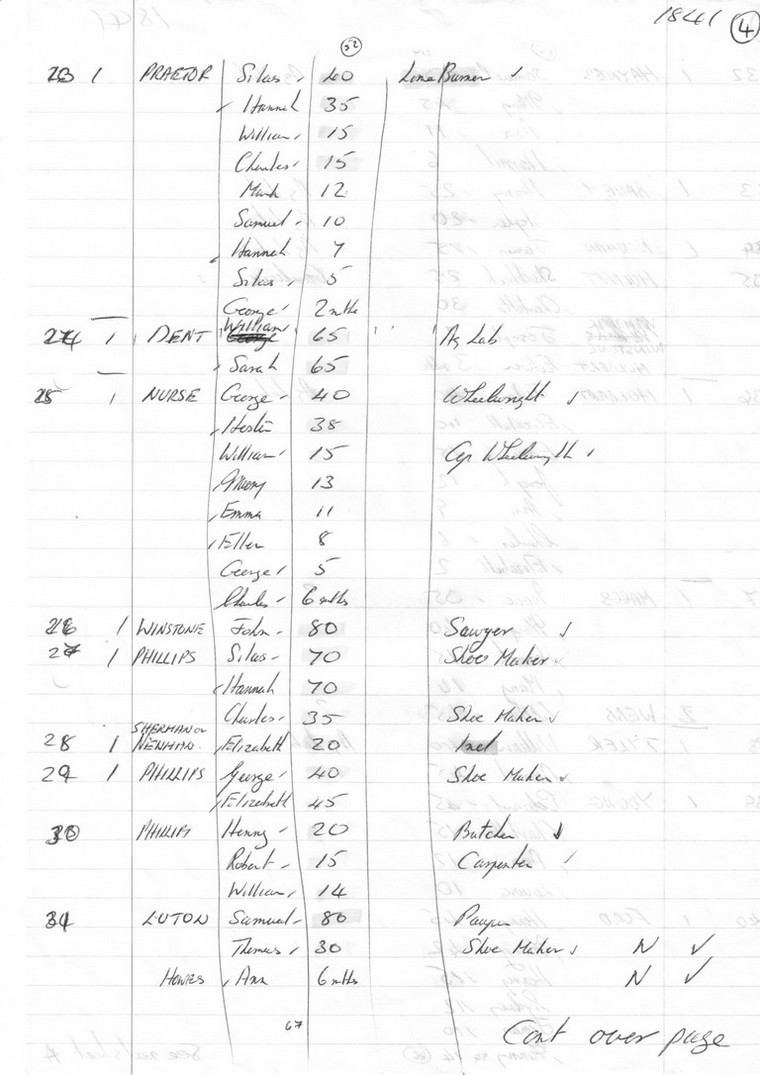 1841 4
52
23 1 PRAETOR Silas 40 Lime Burner
Hannah 35
William 15
Charles 15
Mark 12
Samuel 10
Hannah 7
Silas 5
George 2 mths
24 1 DENT William George 65 Ag Lab
Sarah 65
25 1 NURSE George 40 Wheelwright
Hester 38
William 15 Wheelwright
Mary 13
Emma 11
Ellen 8
George 5
Charles 6 mths
26 1 WINSTONE John 80 Sawyer
27 1 PHILLIPS Silas 70 Shoe Maker
Hannah 70
Charles 35 Shoe Maker
SHERMAN or
28 1 NENMAN Elizabeth 20 Ind
29 1 PHILLIPS George 40 Shoe Maker
Elizabeth 45
30 PHILLIPS Henry 20 Butcher
Robert 15 Carpenter
William 14
31 LUTON Samuel 80 Pauper
Thomas 30 Shoe Maker N ✓
HOWES Ann 6 mths N ✓
67
Cont over page